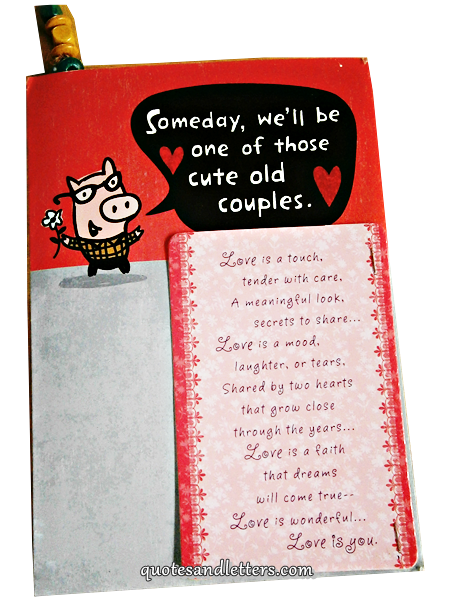 Someday, we'll be
one of those
cute old
couples.
Love is a touch,
tender with care,
A meaningful look,
secrets to share...
Love is a mood,
laughter, or tears,
Shared by two hearts
that grow close
through the years...
Love is a faith
that dreams
will come true--
Love is wonderful...
Love is you.
quotesandletters.com